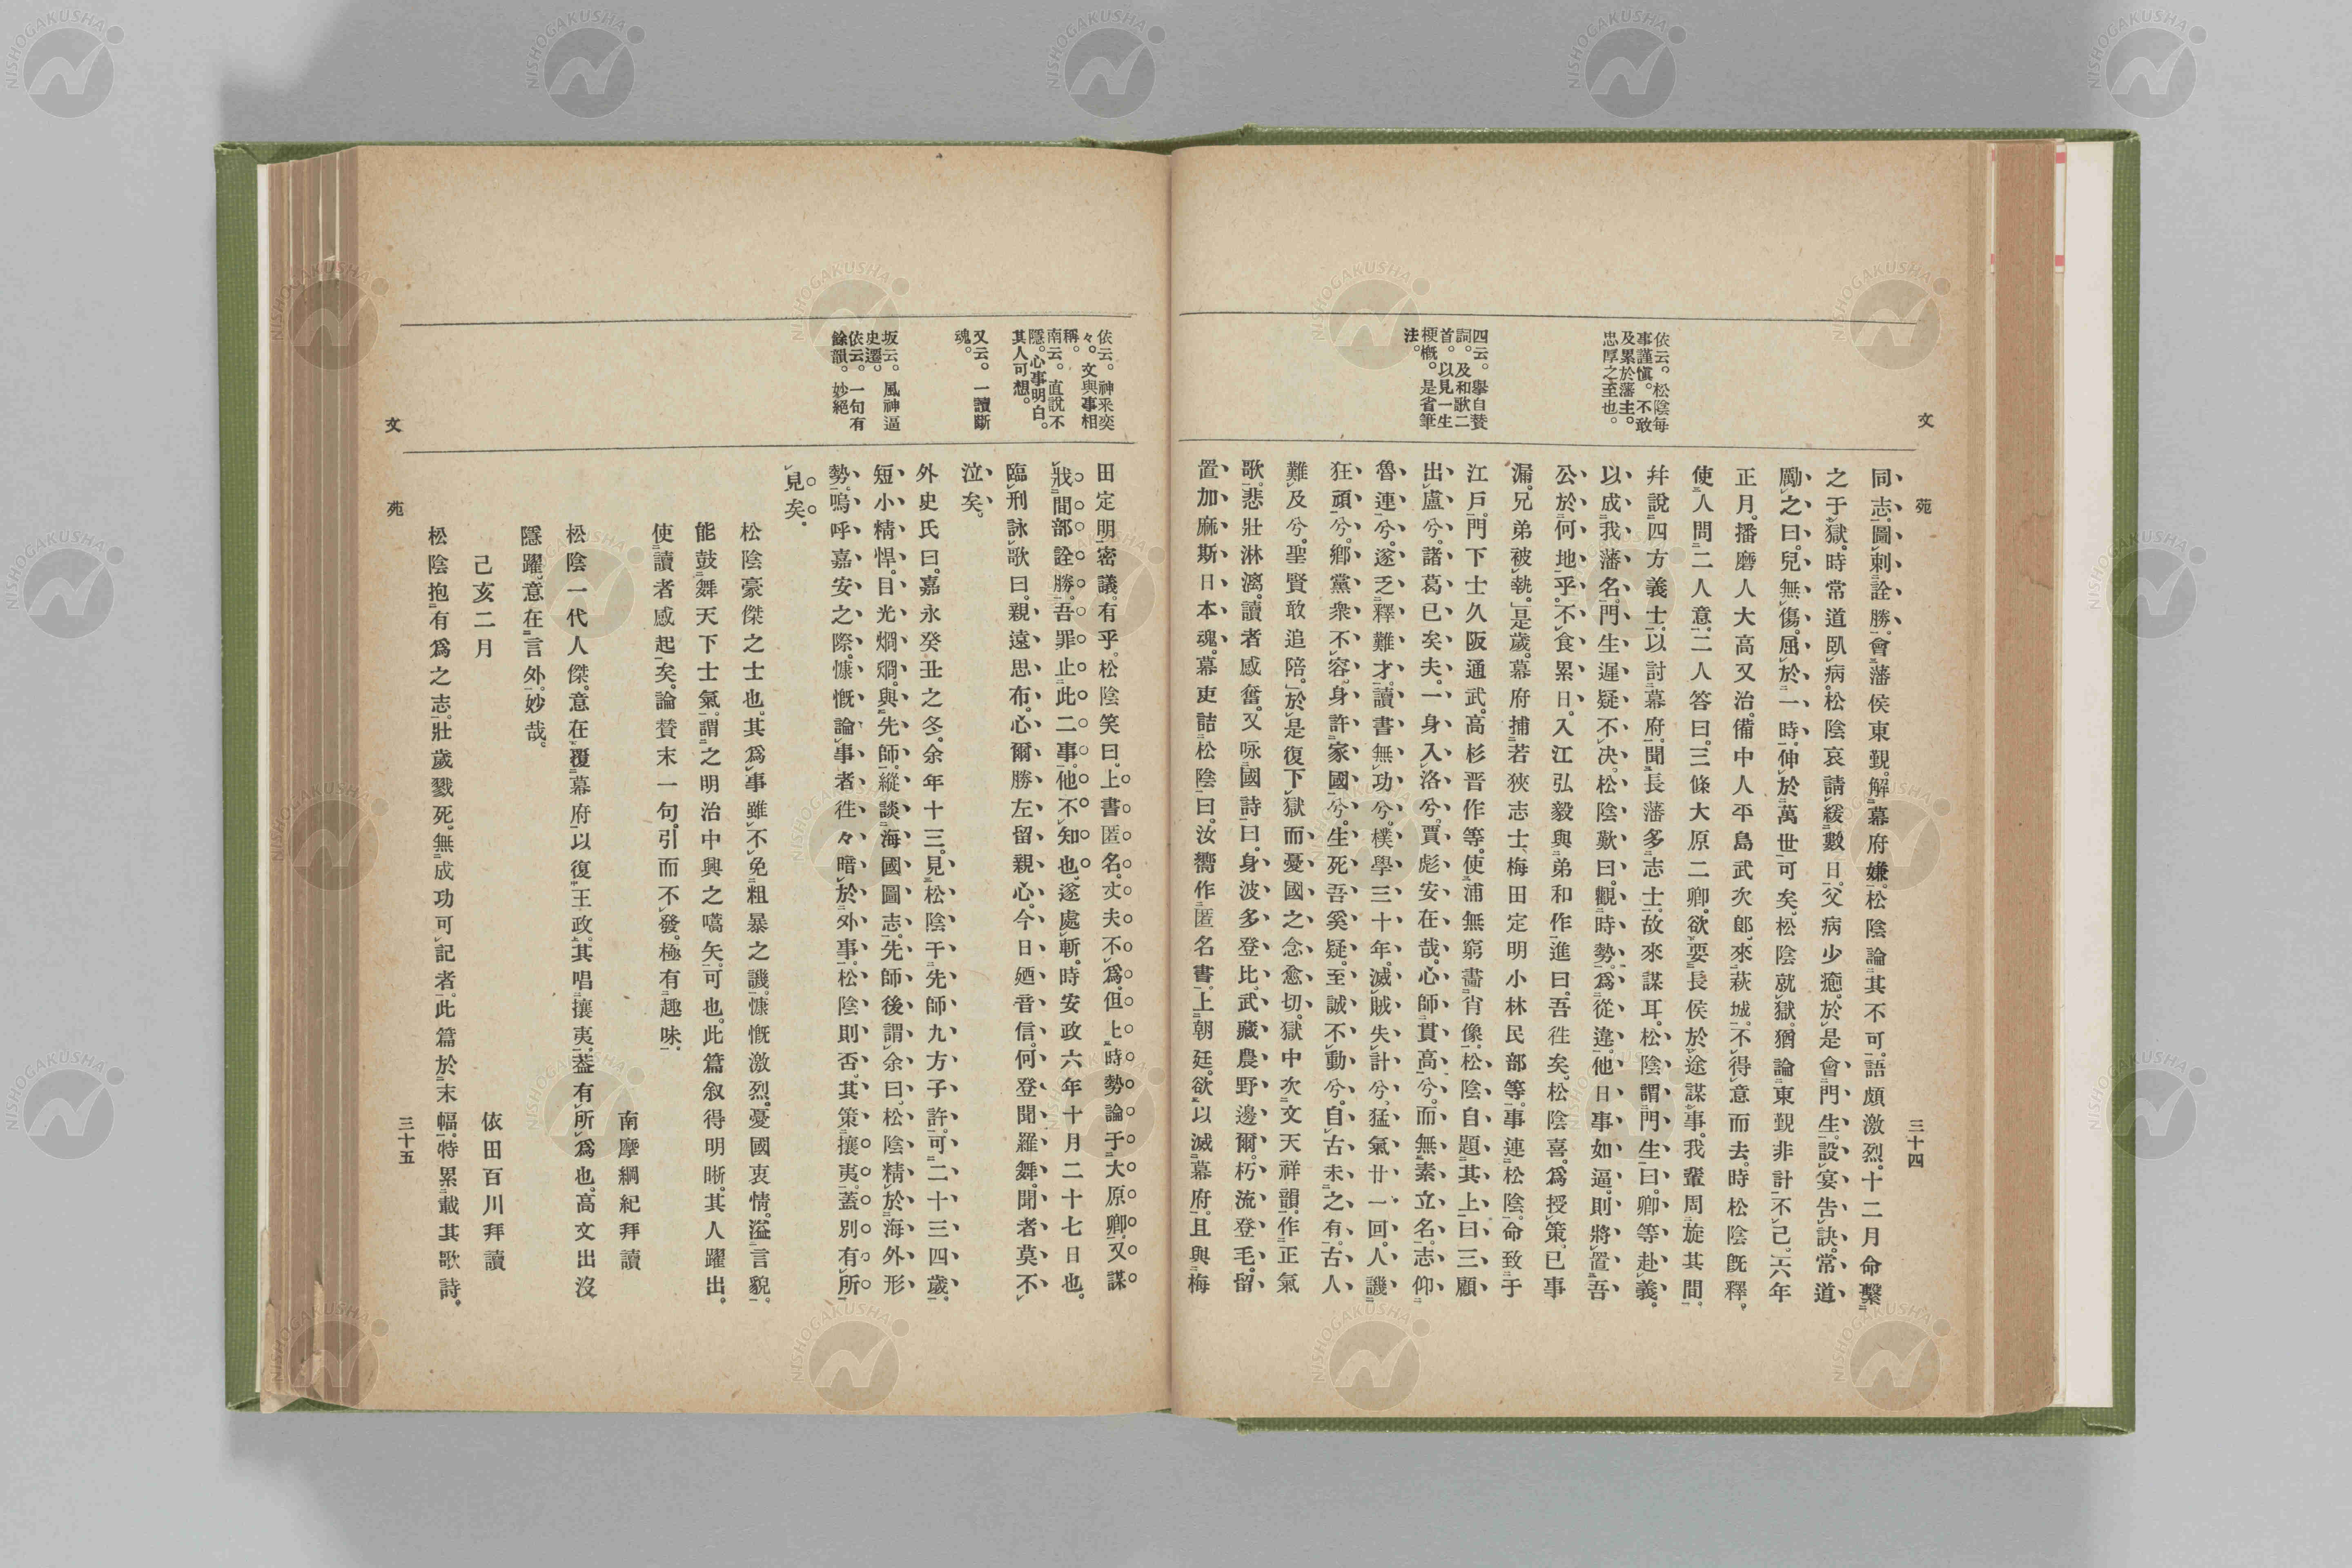 文
苑
三十四
依云。松陰每
事謹愼。不敢
及累於藩主。
忠厚之至也。
四云。擧自贊
詞。及和歌二
首。以見一生
梗槪。是省筆
法。
同志圖刺詮勝。會藩侯東覲。解幕府嫌。松陰論其不可。語頗激烈。十二月命繫
之于獄。時常道臥病。松陰哀請緩數日。父病少癒。於是會門生。設宴告訣。常道
勵之曰。兒無傷。屈於一時。伸於萬世可矣。松陰就獄。猶論東覲非計不已。六年
正月。播磨人大高又治。備中人平島武次郞。來萩城。不得意而去。時松陰旣釋。
使人問二人意。二人答曰。三條大原二卿。欲要長侯於途謀事。我輩周旋其間。
幷說四方義士。以討幕府。聞長藩多志士。故來謀耳。松陰謂門生曰。卿等赴義。
以成我藩名。門生遲疑不決。松陰歎曰。觀時勢。爲從違。他日事如逼。則將置吾
公於何地乎。不食累日。入江弘毅與弟和作進曰。吾徃矣。松陰喜。爲授策。已事
漏。兄弟被執。是歲。幕府捕若狹志士、梅田定明小林民部等。事連松陰。命致于
江戶。門下士久阪通武。高杉晋作等。使浦無窮畵肖像。松陰自題其上曰三顧
出盧兮。諸葛已矣夫。一身入洛兮。賈彪安在哉。心師貫高兮。而無素立名。志仰
魯連兮。遂乏釋難才。讀書無功兮。樸學三十年。滅賊失計兮。猛氣廿一回。人譏
狂頑兮。鄕黨衆不容。身許家國兮。生死吾奚疑。至誠不動兮。自古未之有。古人
難及兮。聖賢敢追陪。」於是復下獄而憂國之念愈切。獄中次文天祥韻。作正氣
歌。悲壯淋漓。讀者感奮。又咏國詩曰。身波多登比。武藏農野邊爾。朽流登毛。留
置加麻斯日本魂。幕吏詰松陰曰。汝嚮作匿名書。上朝廷。欲以滅幕府。且與梅
依云。神采奕
々。文與事相
稱。
南云。直說不
隱。心事明白。
其人可想。
又云。一讀斷
魂。
坂云。風神逼
史遷。
依云。一句有
餘韻。妙絕
田定明密議。有乎。松陰笑曰。上書匿名。丈夫不爲。但上時勢論于大原卿。又謀
戕間部詮勝。吾罪止此二事。他不知也。遂處斬。時安政六年十月二十七日也。
臨刑詠歌曰。親遠思布。心爾勝左留親心。今日廼音信。何登聞羅舞。聞者莫不
泣矣。
外史氏曰。嘉永癸丑之冬。余年十三。見松陰于先師九方子許。可二十三四歲。
短小精悍。目光烱烱。與先師。縱談海國圖志。先師後謂余曰。松陰精於海外形
勢。嗚呼。嘉安之際。慷慨論事者徃々暗於外事。松陰則否。其策攘夷。蓋別有所
見矣。
松陰豪傑之士也。其爲事雖不免粗暴之譏。慷慨激烈。憂國衷情。溢言貌。
能鼓舞天下士氣。謂之明治中興之嚆矢。可也。此篇叙得明晰。其人躍出。
使讀者感起矣。論贊末一句。引而不發。極有趣味。
南摩綱紀拜讀
松陰一代人傑。意在覆幕府以復王政。其唱攘夷。葢有所爲也。高文出沒
隱躍。意在言外。妙哉。
己亥二月
依田百川拜讀
松陰抱有爲之志。壯歲戮死。無成功可記者。此篇於末幅。特累載其歌詩。
文
苑
三十五